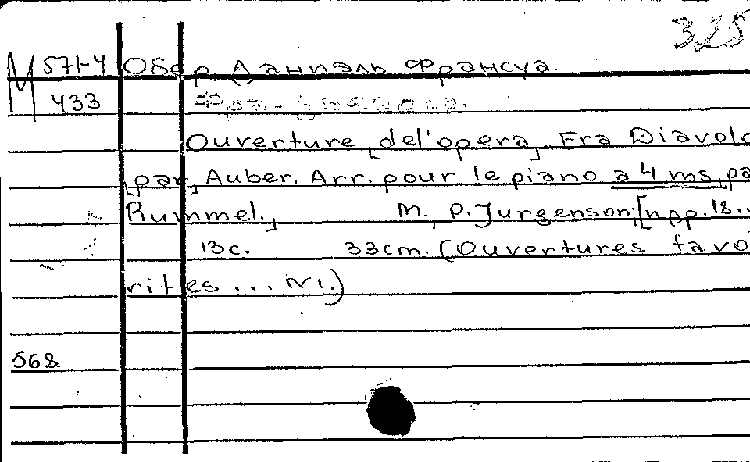 325
М 571-4 Обер Даниэль Франсуа.
433 Фра-Дьяволо.
Ouverture [de l'opera] Fra Diavolo
[par] Auber. Arr. pour le piano à 4 ms pa
Rummel. М, P. Jurgenson, [н.др. 18..
13 c. 33 cm. (Ouvertures favo
rites ... №1.)
568